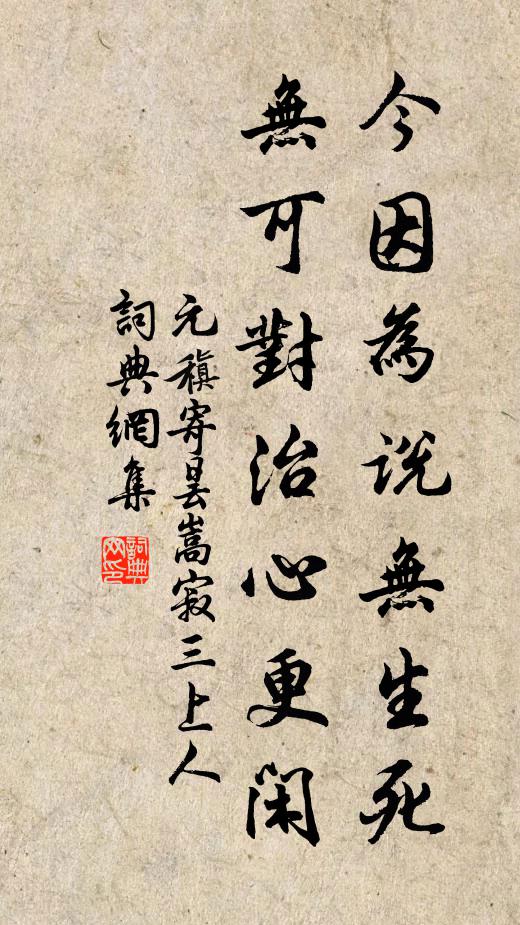 今因為説無生死
無可對治心更閑
元稹寄曇嵩寂三上人
詞典網集
詞典
网印